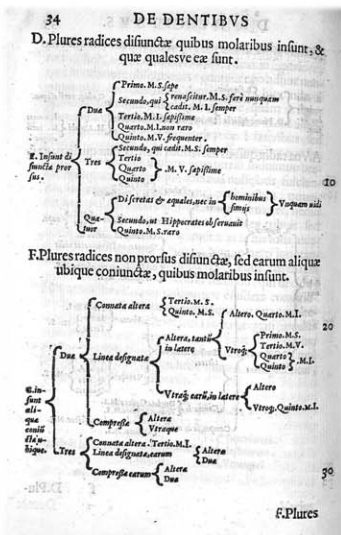 34 DE DENTIBVS
D. Plures radices disiunctæ quibus molaribus insunt, &
quæ qualesve eæ sunt.
Primo. M.S. sæpe
Duæ
Secundo, qui
renascitur. M.S. ferè nunquam
cadit. M.I. semper
Tertio. M.I. sæpissime
Quarto. M.I. non raro
Quinto. M.V. frequenter.
E. Insunt di
sunctæ pror
sus.
Tres
Secundo, qui cadit. M.S. semper
Tertio
Quarto
Quinto
M.V. sæpissime
10
Quatuor
Discretas & æquales, nec in
hominibus
simijs
Vnquam uidi
Secundo, ut Hippocrates obseruauit
Quinto. M.S. raro
F. Plures radices non prorsus disiunctæ, sed earum aliquæ
ubique coniunctæ, quibus molaribus insunt.
Connata altera
Tertio. M.S.
Quinto. M.S.
20
Duæ
Linea designata
Altera, tantū
in latere
Altero. Quarto. M.I.
Vtroq;
Primo. M.S.
Tertio. M.V.
Quarto
Quinto
M.I.
Vtraq; earū, in latere
Altero
Vtroq. Quinto. M.I.
E. in-
sunt
ali-
quæ
coniū
ctæ u-
bique.
Compressa
Altera
Vtraque
Tres
Connata altera. Tertio. M.I.
Linea designata, earum
Altera
Duæ
Compressa earum
Altera
Duæ
30
F. Plures